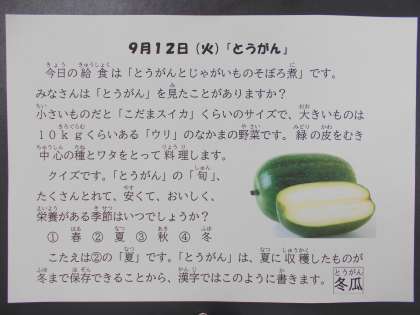 9月12日（火）「とうがん」
今日の給食は「とうがんとじゃがいものそぼろ煮」です。
みなさんは「とうがん」を見たことがありますか？
小さいものだと「こだまスイカ」くらいのサイズで、大きいものは
10kgくらいある「ウリ」のなかまの野菜です。緑の皮をむき
中心の種とワタをとって料理します。
クイズです。「とうがん」の「旬」、
たくさんとれて、安くて、おいしく、
栄養がある季節はいつでしょうか？
① 春 ② 夏 ③ 秋 ④ 冬
こたえは②の「夏」です。「とうがん」は、夏に収穫したものが
冬まで保存できることから、漢字ではこのように書きます。 冬瓜